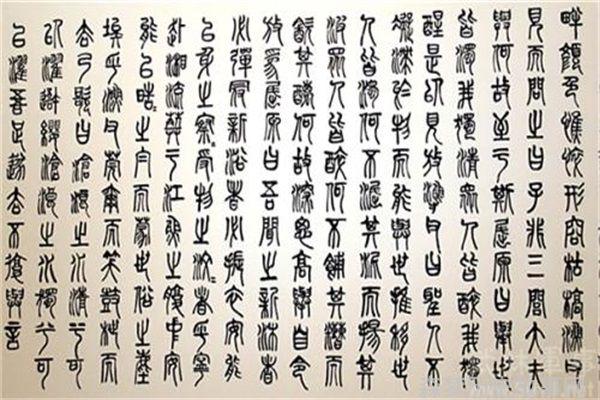 畔顏色憔悴形容枯槁漁父
見而問之曰子非三閭大夫
與何故至於斯屈原曰舉世
皆濁我獨清眾人皆醉我獨
醒是以見放漁父曰聖人不
凝滯於物而能與世推移世
人皆濁何不淈其泥而揚其
波眾人皆醉何不餔其糟而
歠其醨何故深思高舉自令
放為屈原曰吾聞之新沐者
必彈冠新浴者必振衣安能
以身之察受物之汶者乎寧
赴湘流葬於江魚之腹中安
能以皓之白而蒙世俗之塵
埃乎漁父莞爾而笑鼓枻而
去乃歌曰滄浪之水清兮可
以濯吾纓滄浪之水濁兮可
以濯吾足遂去不復與言